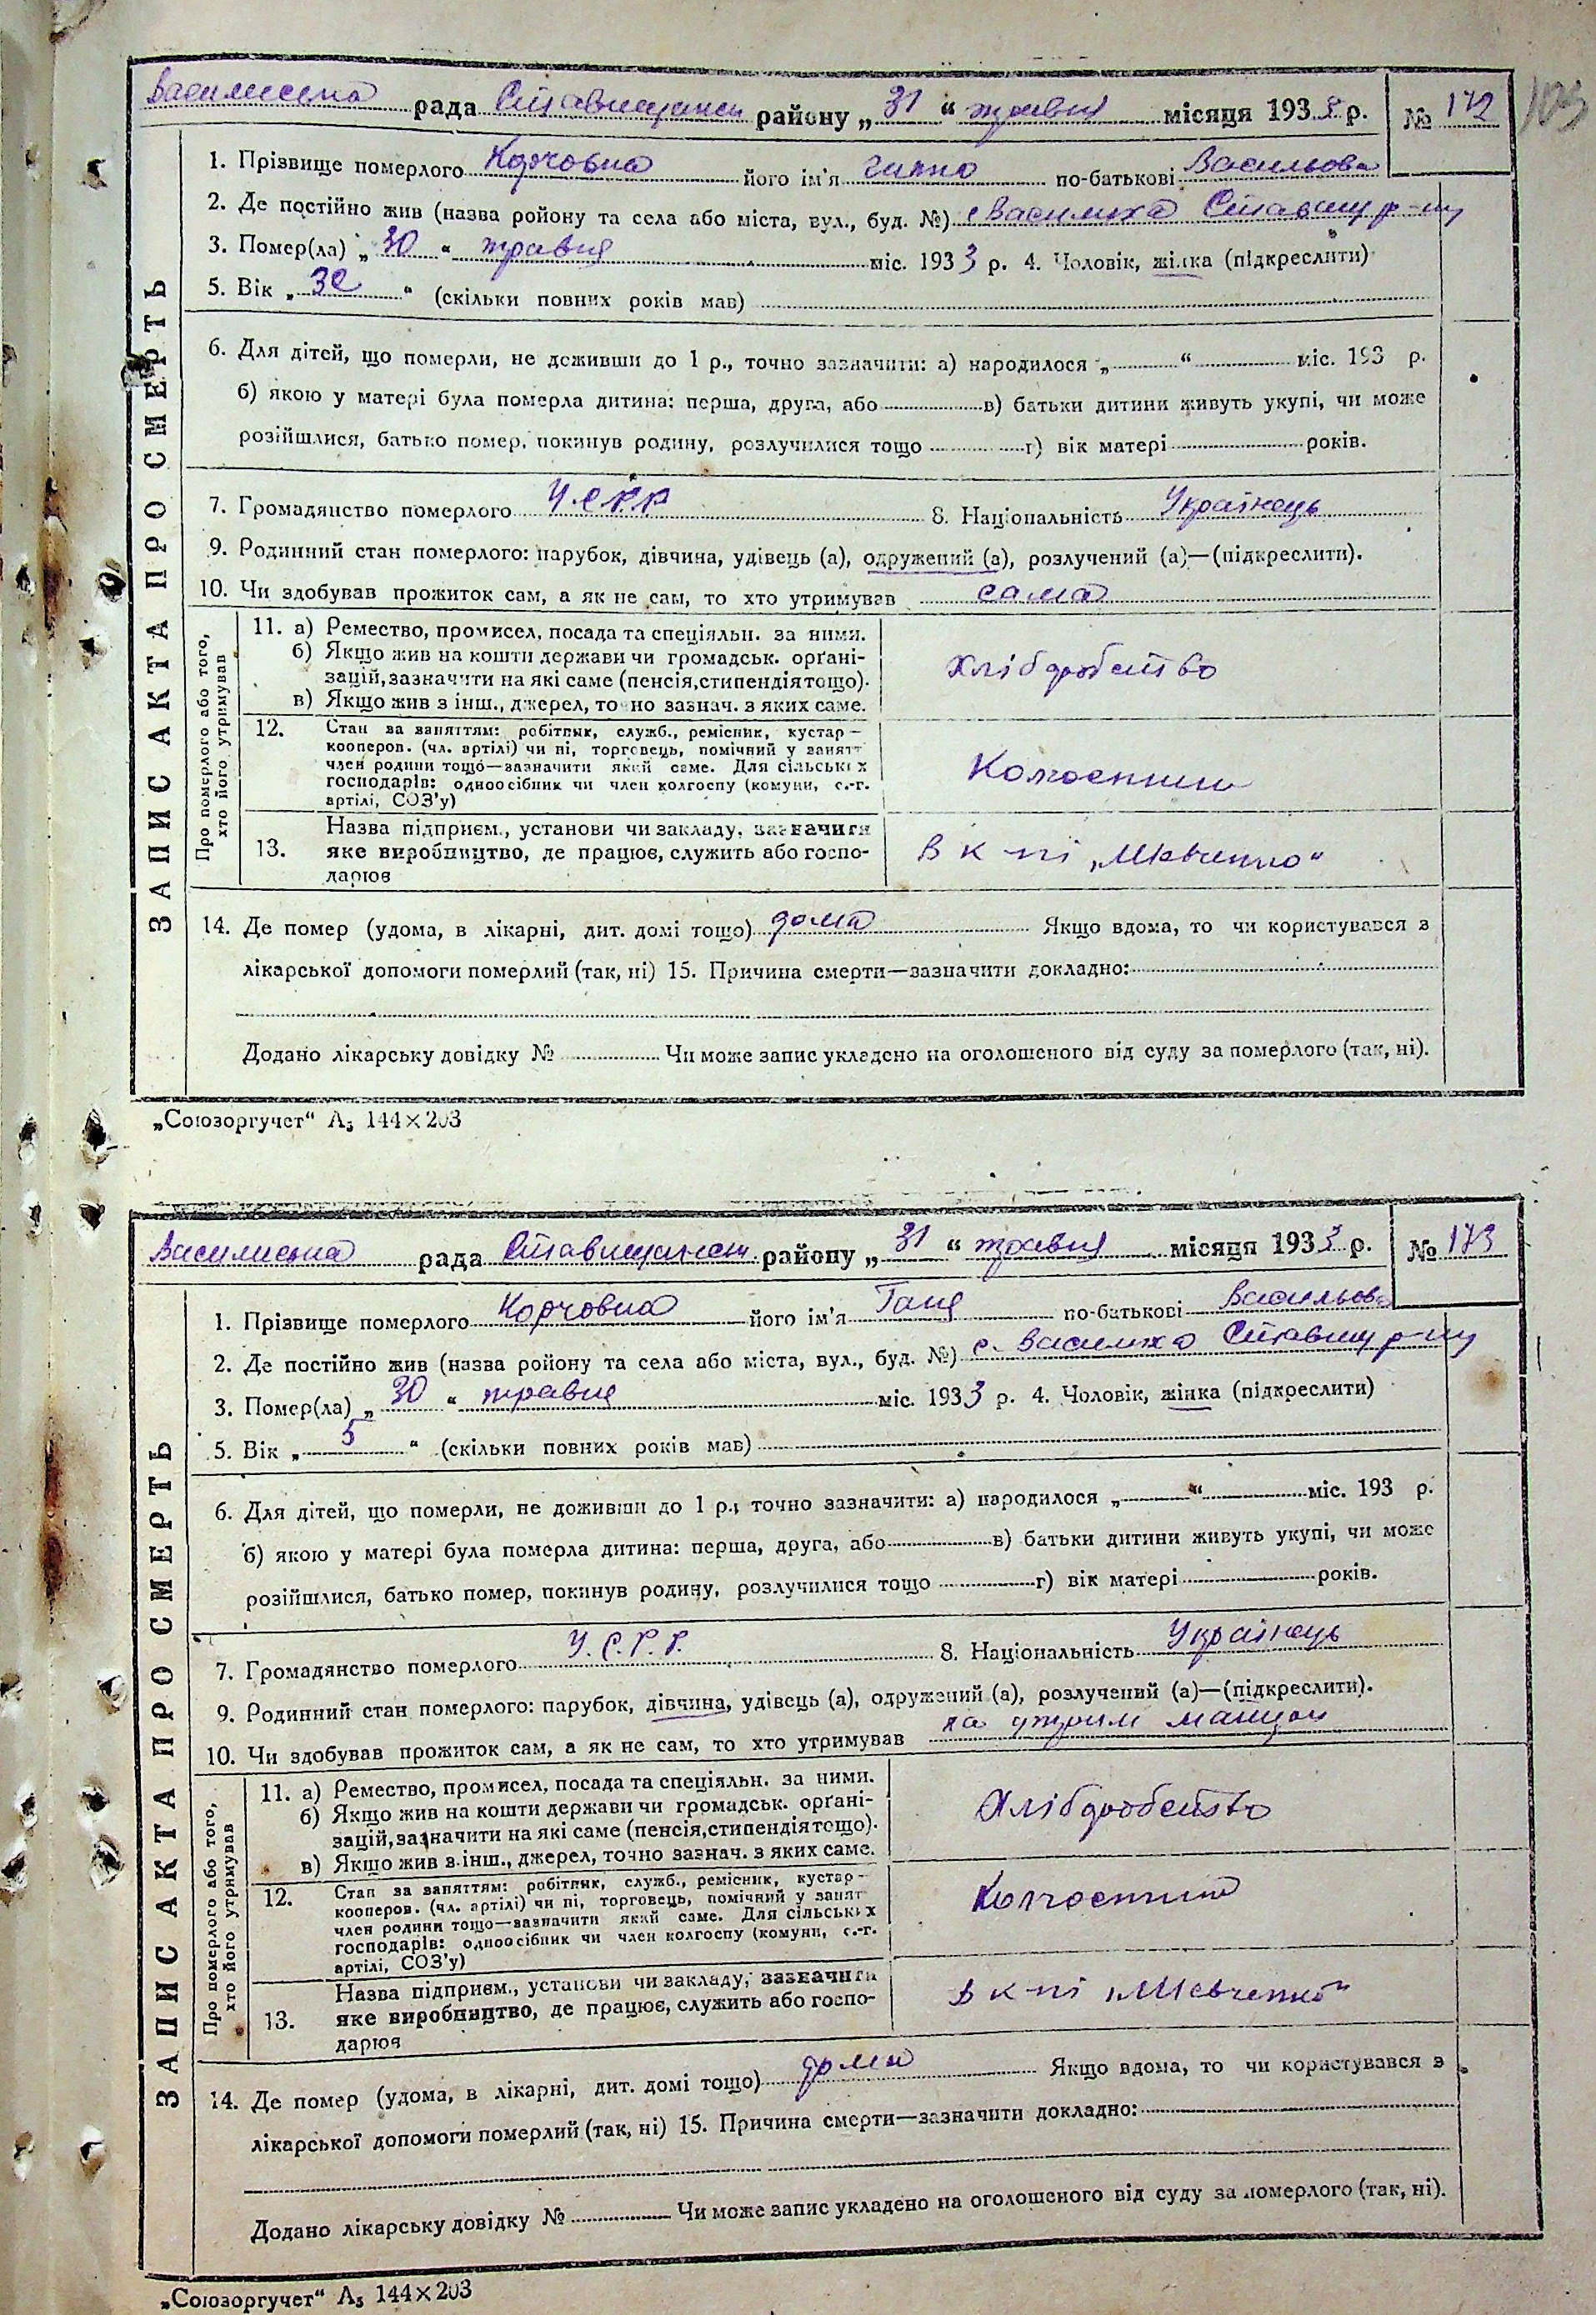 Василиська рада Ставищанськ району „31“ травня місяця 1933 р. № 172
103
ЗАПИС АКТА ПРО СМЕРТЬ
1. Прізвище померлого Корчовна його ім'я по-батькові Васильова
2. Де постійно жив (назва ройону та села або міста, вул., буд. №) с Василиха Ставищ р-ну
3. Помер(ла) „30“ травня міс. 1933 р. 4. Чоловік, жінка (підкреслити)
5. Вік „ “ (скільки повних років мав)
6. Для дітей, що померли, не доживши до 1 р., точно зазначити: а) народилося „ “ міс. 193 р.
б) якою у матері була померла дитина: перша, друга, або в) батьки дитини живуть укупі, чи може
розійшлися, батько помер, покинув родину, розлучилися тощо г) вік матері років.
7. Громадянство померлого У.С.Р.Р 8. Національність Українець
9. Родинний стан померлого: парубок, дівчина, удівець (а), одружений (а), розлучений (а)—(підкреслити).
10. Чи здобував прожиток сам, а як не сам, то хто утримував сама
Про померлого або того,
хто його утримував
11. а) Ремество, промисел, посада та спеціяльн. за ними.
б) Якщо жив на кошти держави чи громадськ. орґані-
зацій, зазначити на які саме (пенсія, стипендія тощо).
в) Якщо жив з інш., джерел, точно зазнач. з яких саме.
Хліборобство
12. Стан за заняттям: робітник, служб., ремісник, кустар—
кооперов. (чл. артілі) чи ні, торговець, помічний у занятт
член родини тощо—зазначити який саме. Для сільських
господарів: одноосібник чи член колгоспу (комуни, с.-г.
артілі, СОЗ'у)
Колгоспник
13. Назва підприєм., установи чи закладу, зазначити
яке виробництво, де працює, служить або госпо-
дарює
В к-пі „Шевченко“
14. Де помер (удома, в лікарні, дит. домі тощо) дома Якщо вдома, то чи користувався з
лікарської допомоги померлий (так, ні) 15. Причина смерти—зазначити докладно:
Додано лікарську довідку № Чи може запис укладено на оголошеного від суду за померлого (так, ні).
„Союзоргучет“ А5 144×203
Василиська рада Ставищанськ району „31“ травня місяця 1933 р. № 173
ЗАПИС АКТА ПРО СМЕРТЬ
1. Прізвище померлого Корчовна його ім'я Ганя по-батькові Васильова
2. Де постійно жив (назва ройону та села або міста, вул., буд. №) с. Василиха Ставищ р-ну
3. Помер(ла) „30“ травня міс. 1933 р. 4. Чоловік, жінка (підкреслити)
5. Вік „5“ (скільки повних років мав)
6. Для дітей, що померли, не доживши до 1 р., точно зазначити: а) народилося „ “ міс. 193 р.
б) якою у матері була померла дитина: перша, друга, або в) батьки дитини живуть укупі, чи може
розійшлися, батько помер, покинув родину, розлучилися тощо г) вік матері років.
7. Громадянство померлого У.С.Р.Р. 8. Національність Українець
9. Родинний стан померлого: парубок, дівчина, удівець (а), одружений (а), розлучений (а)—(підкреслити).
10. Чи здобував прожиток сам, а як не сам, то хто утримував на утрим
Про померлого або того,
хто його утримував
11. а) Ремество, промисел, посада та спеціяльн. за ними.
б) Якщо жив на кошти держави чи громадськ. орґані-
зацій, зазначити на які саме (пенсія, стипендія тощо).
в) Якщо жив з інш., джерел, точно зазнач. з яких саме.
Хліборобство
12. Стан за заняттям: робітник, служб., ремісник, кустар—
кооперов. (чл. артілі) чи ні, торговець, помічний у занят
член родини тощо—зазначити який саме. Для сільських
господарів: одноосібник чи член колгоспу (комуни, с.-г.
артілі, СОЗ'у)
Колгоспник
13. Назва підприєм., установи чи закладу, зазначити
яке виробництво, де працює, служить або госпо-
дарює
В к-пі „Шевченко“
14. Де помер (удома, в лікарні, дит. домі тощо) дома Якщо вдома, то чи користувався з
лікарської допомоги померлий (так, ні) 15. Причина смерти—зазначити докладно:
Додано лікарську довідку № Чи може запис укладено на оголошеного від суду за померлого (так, ні).
„Союзоргучет“ А5 144×203